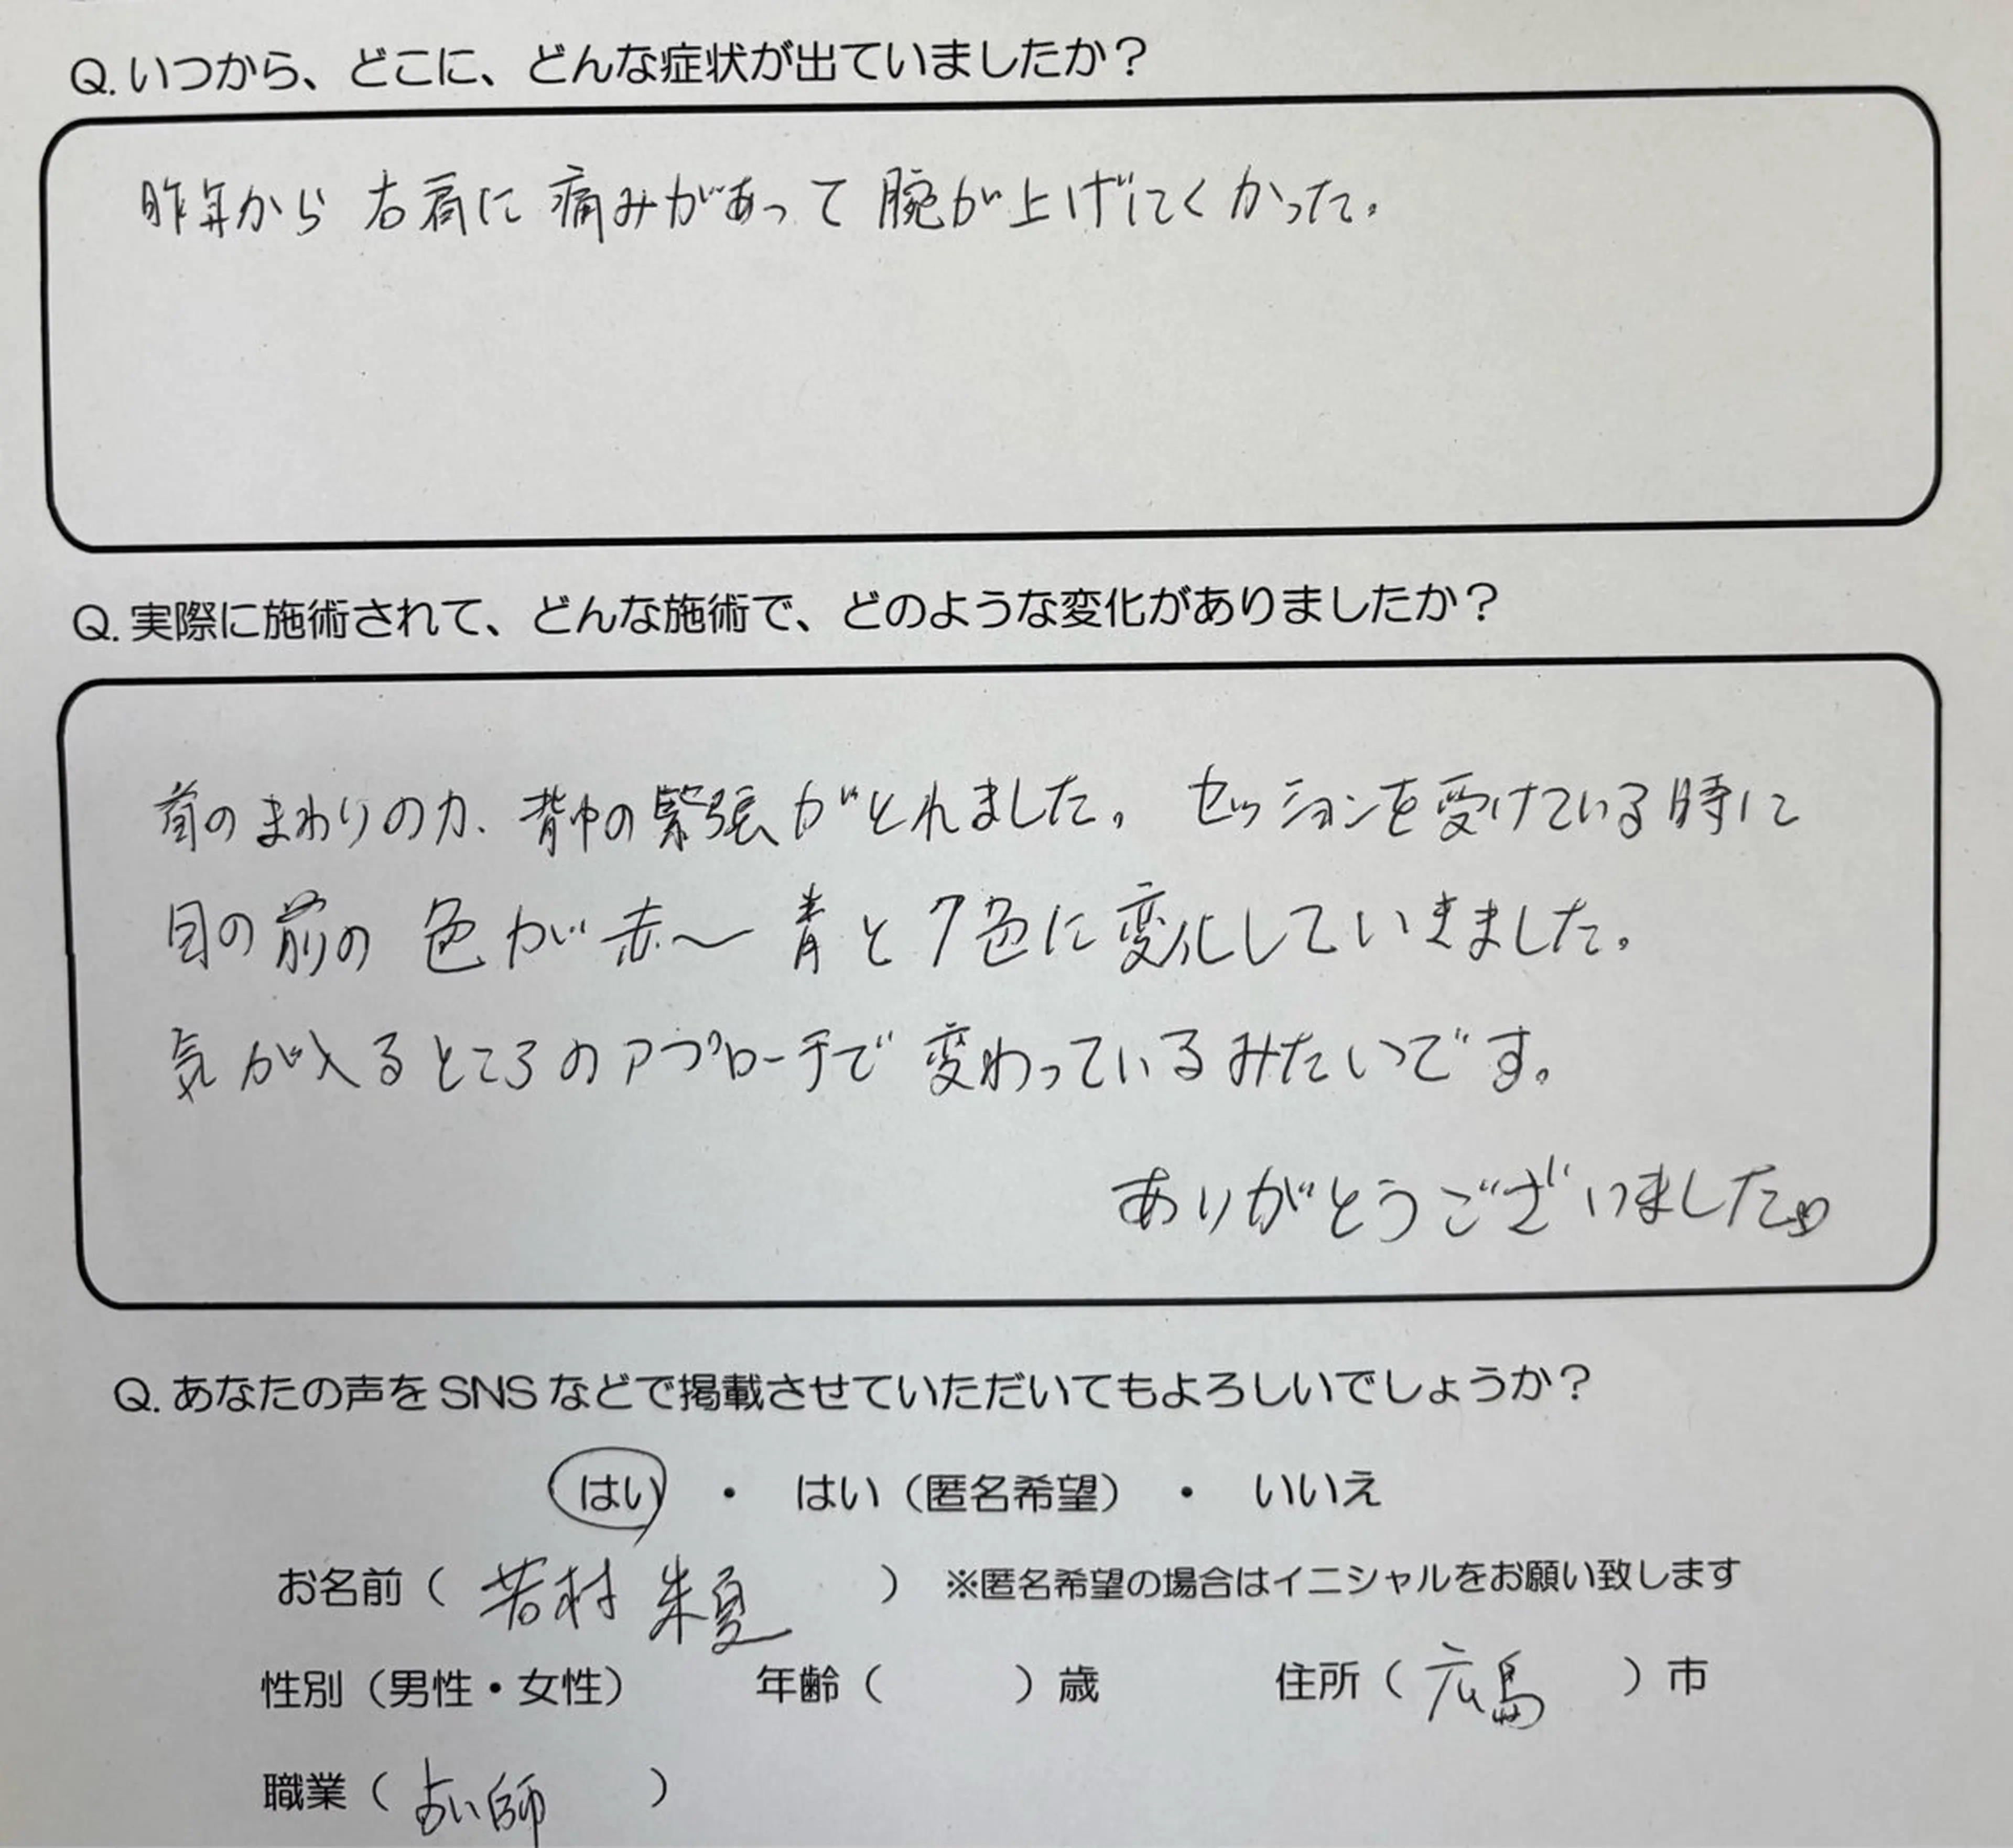 Q. いつから、どこに、どんな症状が出ていましたか？
昨年から 右肩に 痛みがあって 腕が上げにくかった。
Q. 実際に施術されて、どんな施術で、どのような変化がありましたか？
首のまわりの力、背中の緊張がとれました。 セッションを受けている時に
目の前の 色が 赤〜 青と 7色に変化していきました。
気が入るところのアプローチで 変わっているみたいです。
ありがとうございました♡
Q. あなたの声をSNSなどで掲載させていただいてもよろしいでしょうか？
はい ・ はい（匿名希望） ・ いいえ
お名前（ 若村 朱夏 ） ※匿名希望の場合はイニシャルをお願い致します
性別（男性・女性） 年齢（ ）歳 住所（ 広島 ）市
職業（ 占い師 ）